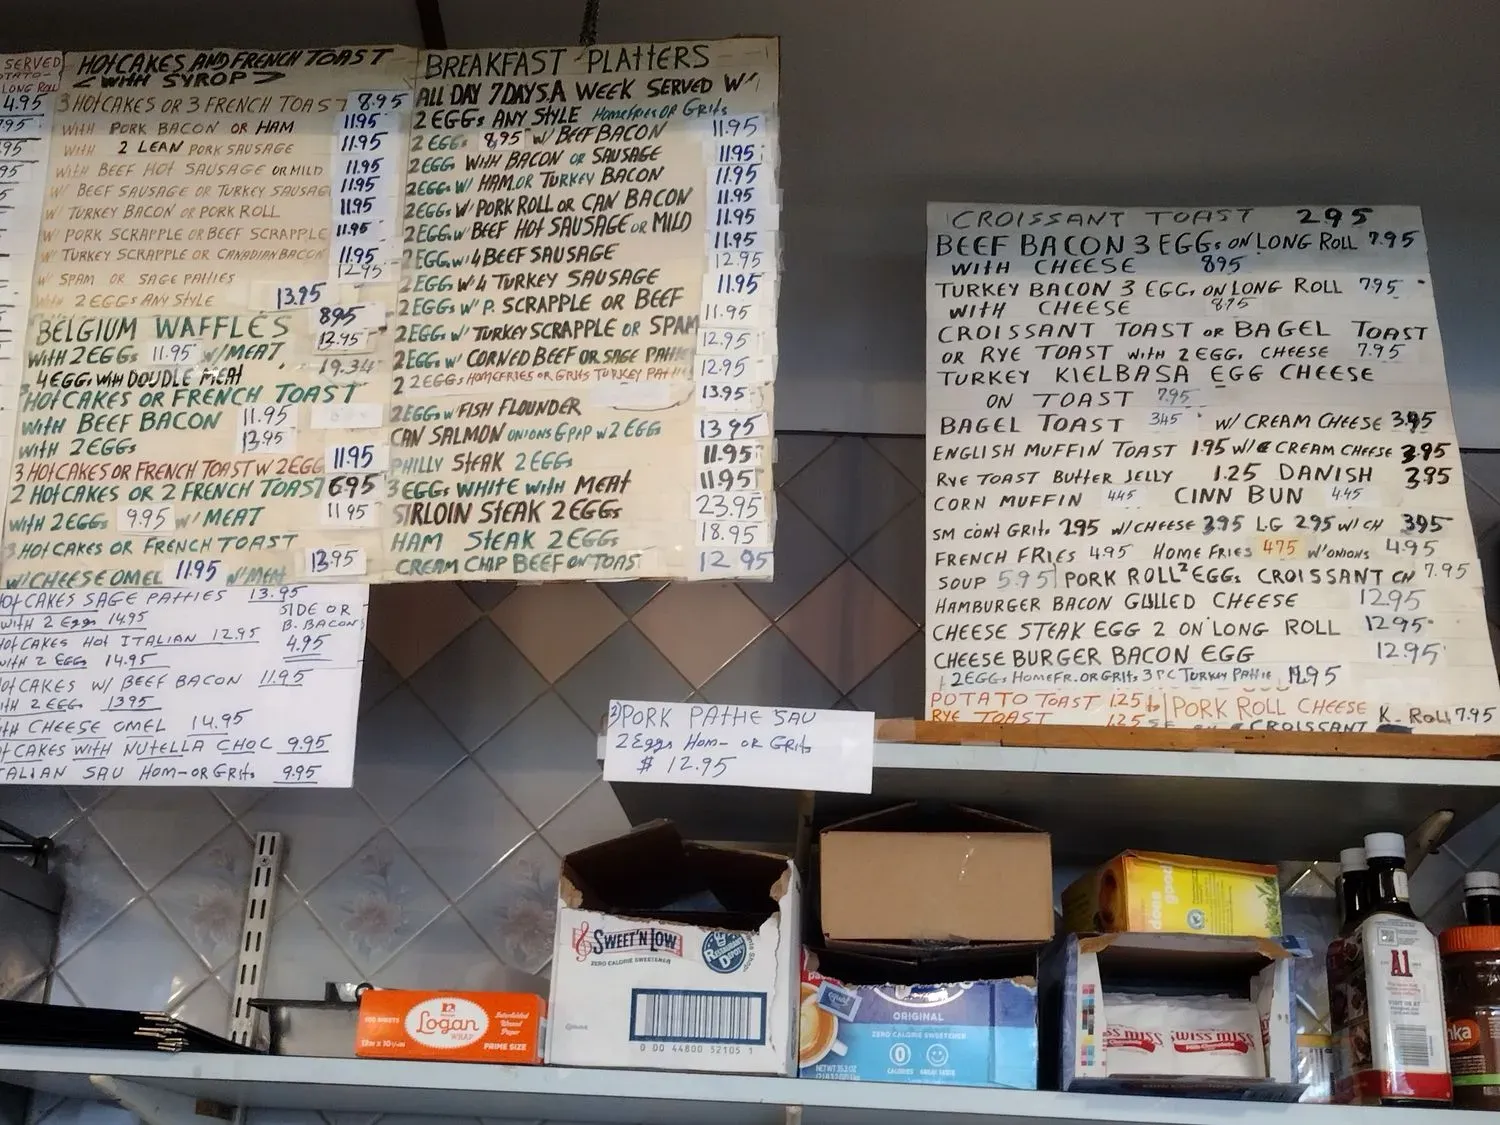 SERVED
LONG ROLL
4.95
HOTCAKES AND FRENCH TOAST
WITH SYROP
3 HOTCAKES OR 3 FRENCH TOAST 8.95
WITH PORK BACON OR HAM 11.95
WITH 2 LEAN PORK SAUSAGE 11.95
WITH BEEF HOT SAUSAGE OR MILD 11.95
W/ BEEF SAUSAGE OR TURKEY SAUSAG 11.95
W/ TURKEY BACON OR PORK ROLL 11.95
W/ PORK SCRAPPLE OR BEEF SCRAPPLE 11.95
W/ TURKEY SCRAPPLE OR CANADIAN BACON 11.95
W/ SPAM OR SAGE PATTIES 12.95
WITH 2 EGGS ANY STYLE 13.95
BELGIUM WAFFLES 8.95
WITH 2 EGGS 11.95 W/MEAT 12.95
4 EGGS WITH DOUBLE MEAT 19.34
HOTCAKES OR FRENCH TOAST
WITH BEEF BACON 11.95
WITH 2 EGGS 13.95
3 HOTCAKES OR FRENCH TOAST W 2 EGG 11.95
2 HOTCAKES OR 2 FRENCH TOAST 6.95
WITH 2 EGGS 9.95 W/ MEAT 11 95
3 HOTCAKES OR FRENCH TOAST
W/CHEESE OMEL 11.95 W/MEAT 13.95
HOTCAKES SAGE PATTIES 13.95
WITH 2 Eggs 14.95
HOTCAKES HOT ITALIAN 12.95
WITH 2 EGGS 14.95
SIDE OR
B. BACON
4.95
HOTCAKES W/ BEEF BACON 11.95
WITH 2 EGGS 1395
WITH CHEESE OMEL 14.95
HOTCAKES WITH NUTELLA CHOC 9.95
ITALIAN SAU HOM-OR GRITS 9.95
BREAKFAST PLATTERS
ALL DAY 7 DAYS A WEEK SERVED W/
2 EGGS ANY STYLE HOMEFRIES OR GRITS
2 EGGS 8.95 W/ BEEF BACON 11.95
2 EGGS WITH BACON OR SAUSAGE 11.95
2 EGGS W/ HAM OR TURKEY BACON 11.95
2 EGGS W/ PORK ROLL OR CAN BACON 11.95
2 EGGS W/ BEEF HOT SAUSAGE OR MILD 11.95
2 EGGS W/ 4 BEEF SAUSAGE 11.95
2 EGGS W/ 4 TURKEY SAUSAGE 12.95
2 EGGS W/ P. SCRAPPLE OR BEEF 11.95
2 EGGS W/ TURKEY SCRAPPLE OR SPAM 11.95
2 EGGS W/ CORNED BEEF OR SAGE PATTIE 12.95
2 2 EGGS HOMEFRIES OR GRITS TURKEY PATTIE 12.95
2 EGGS W/ FISH FLOUNDER 13.95
CAN SALMON ONIONS G PEP W 2 EGG 13 95
PHILLY STEAK 2 EGGS 11.95
3 EGGS WHITE WITH MEAT 11.95
SIRLOIN STEAK 2 EGGS 23.95
HAM STEAK 2 EGGS 18.95
CREAM CHIP BEEF ON TOAST 12 95
3) PORK PATTIE SAU
2 Eggs HOM- OR GRITS
$ 12.95
CROISSANT TOAST 295
BEEF BACON 3 EGGS ON LONG ROLL 7.95
WITH CHEESE 895
TURKEY BACON 3 EGGS ON LONG ROLL 795
WITH CHEESE 875
CROISSANT TOAST OR BAGEL TOAST
OR RYE TOAST WITH 2 EGG. CHEESE 7.95
TURKEY KIELBASA EGG CHEESE
ON TOAST 7.95
BAGEL TOAST 345 W/ CREAM CHEESE 3.95
ENGLISH MUFFIN TOAST 1.95 W/ CREAM CHEESE 3.95
RYE TOAST BUTTER JELLY 1.25 DANISH 3.95
CORN MUFFIN 445 CINN BUN 4.45
SM CONT GRITS 2.95 W/CHEESE 395 LG 295 W/CH 395
FRENCH FRIES 4.95 HOME FRIES 475 W/ONIONS 4.95
SOUP 5.95 PORK ROLL 2 EGGS CROISSANT CH 7.95
HAMBURGER BACON GULLED CHEESE 1295
CHEESE STEAK EGG 2 ON LONG ROLL 12.95
CHEESE BURGER BACON EGG 12.95
2 EGGS, HOMEFR. OR GRITS 3 PC TURKEY PATTIE 11.95
POTATO TOAST 125 PORK ROLL CHEESE K-ROLL 7.95
RYE TOAST 125 CROISSANT
Logan
WRAP
Interfolded
Waxed
Paper
PRIME SIZE
SWEET'N LOW
ZERO CALORIE SWEETENER
RESTAURANT DEPOT
0 00 44800 52105 1
equal
ORIGINAL
ZERO CALORIE SWEETENER
0
CALORIES
GREAT TASTE
does good
SWISS MISS
SWISS MISS
A1